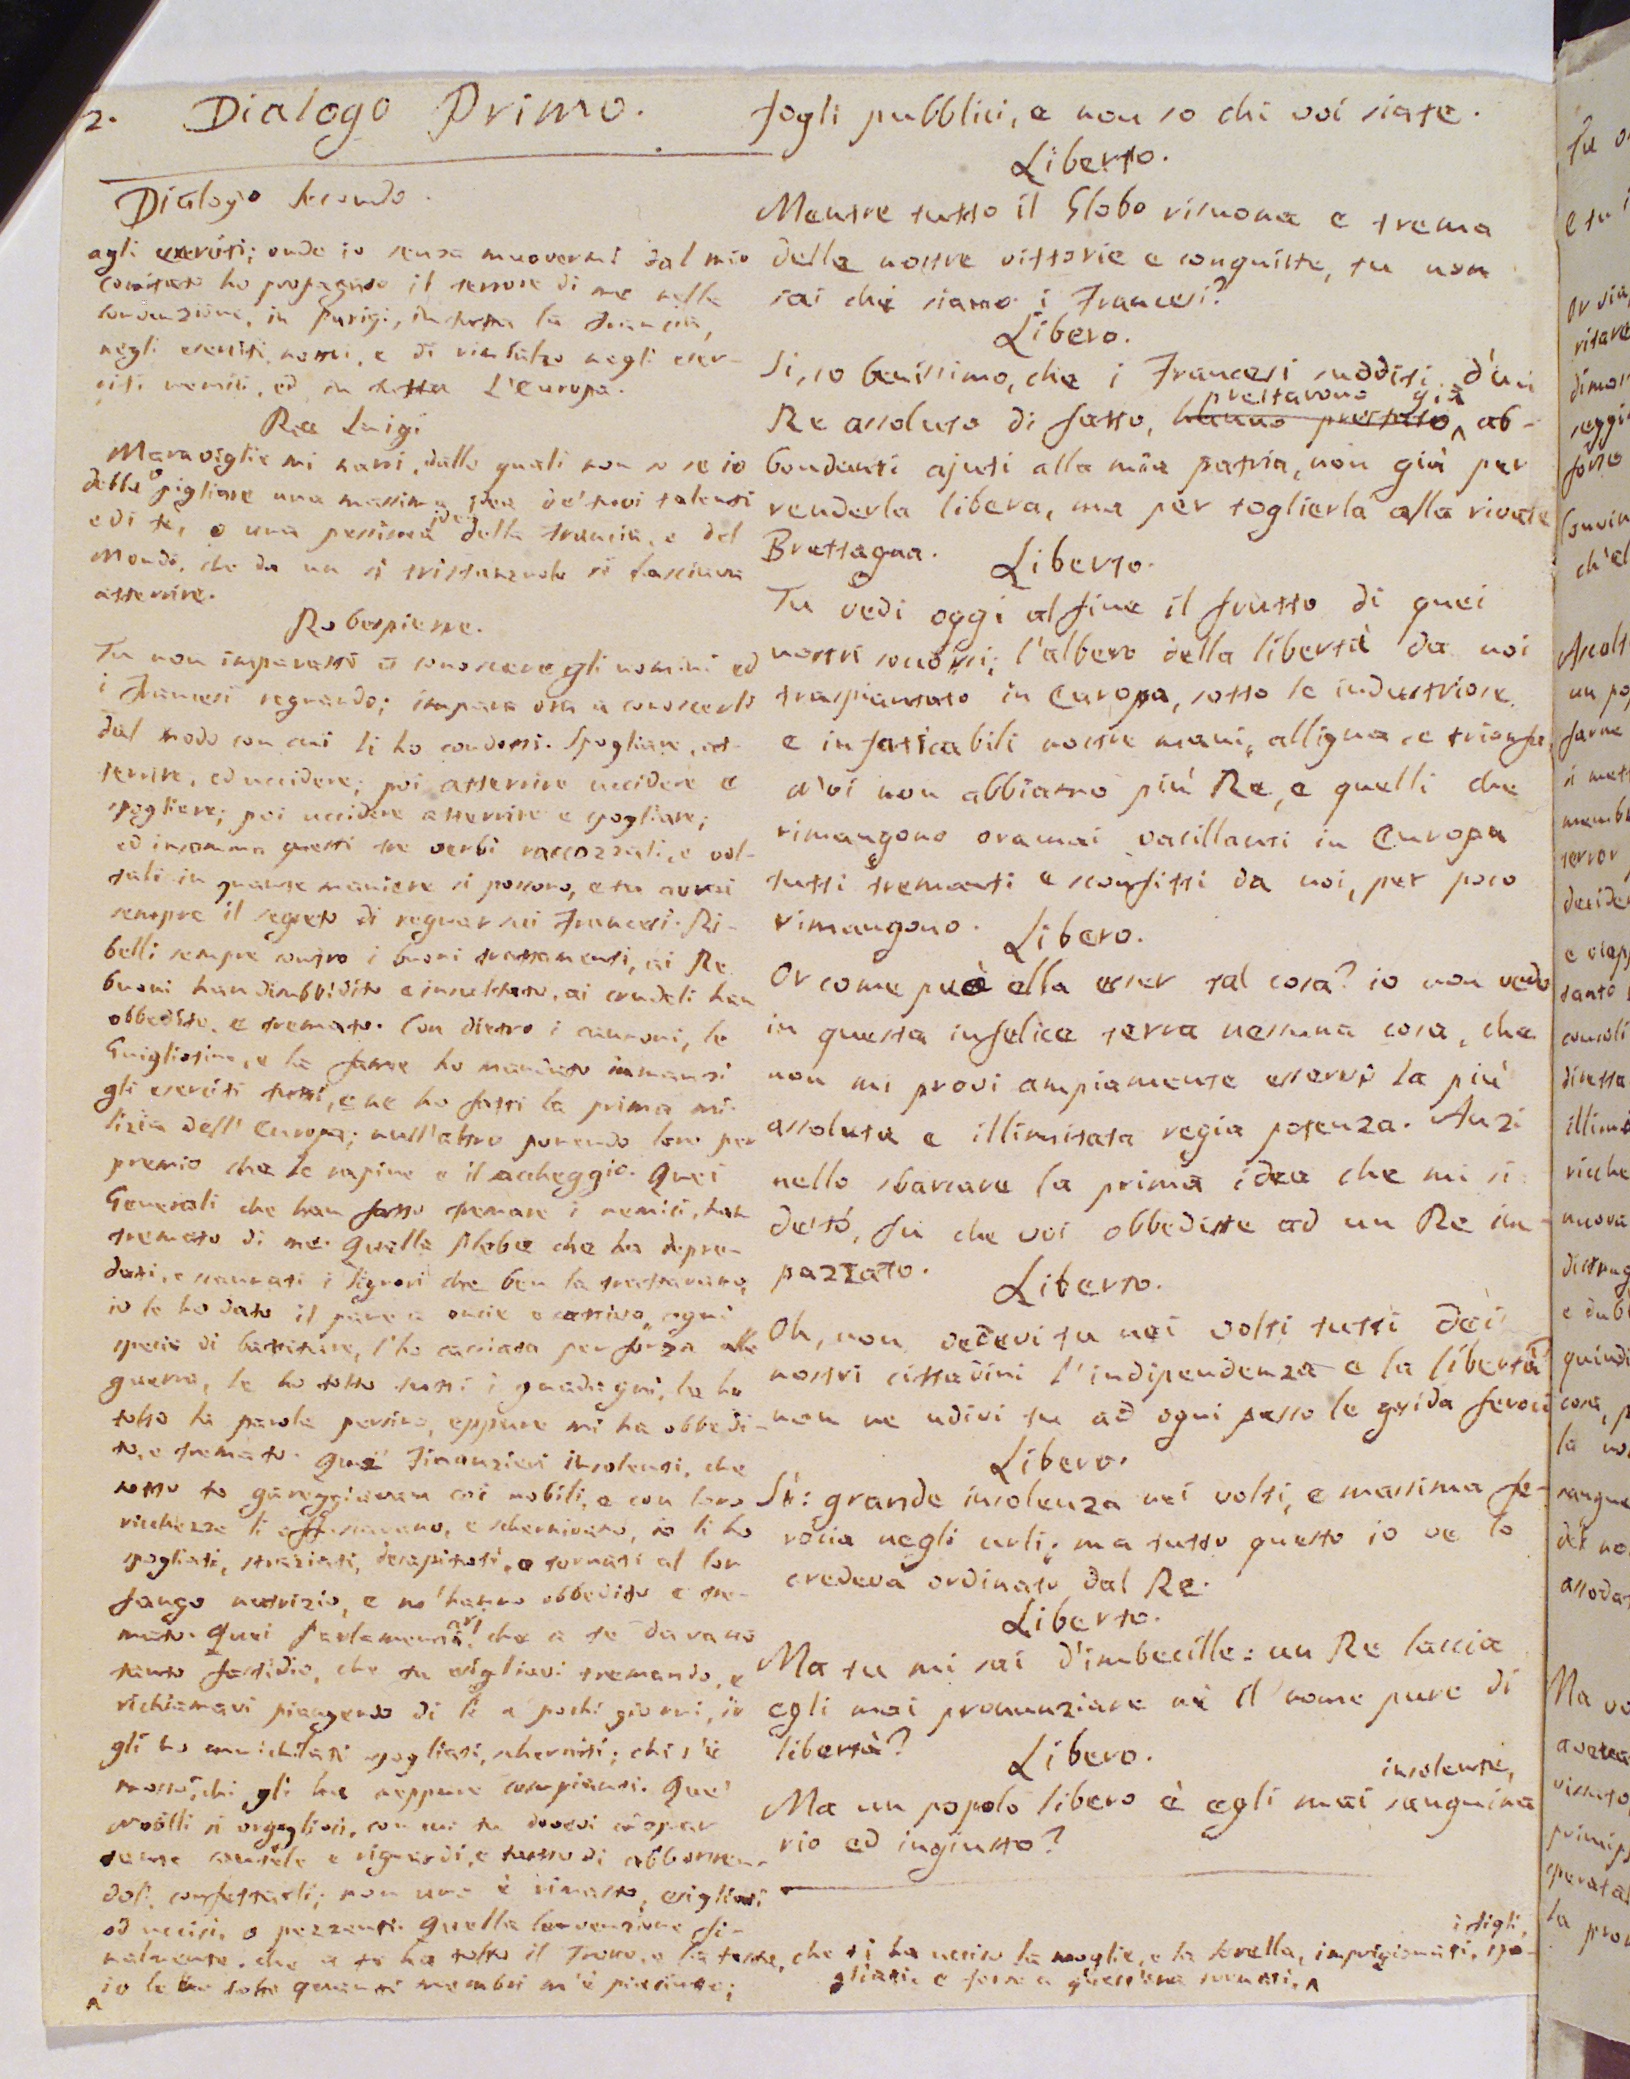 2. Dialogo Primo.
Dialogo Secondo.
agli eserciti; onde io senza muovermi dal mio
comitato ho propagato il terrore di me nella
convenzione, in Parigi, in tutta la Francia,
negli eserciti nostri, e di rimbalzo negli eser-
citi nemici, ed in tutta L'Europa.
Re Luigi
Maraviglie mi narri, dalle quali non so se io
debba pigliare una massima idea de' tuoi talenti
e di te, o una pessima idea della Francia, e del
Mondo, che da un sì tristanzuolo si lasciava
atterrire.
Robespierre.
Tu non imparasti a conoscere gli uomini ed
i Francesi regnando; impara ora a conoscerli
dal modo con cui li ho condotti. Spogliare, at-
terrire, ed uccidere; poi atterrire uccidere e
spogliere; poi uccidere atterrire e spogliare;
ed insomma questi tre verbi raccozzali, e vol-
tali in quante maniere si possono, e tu avrai
sempre il segreto di regnar sui Francesi. Ri-
belli sempre contro i buoni trattamenti, ai Re
buoni han disubbidito e insultato, ai crudeli han
obbedito, e tremato. Con dietro i cannoni, la
Guigliotina, e la fame ho mandato innanzi
gli eserciti tutti, e ne ho fatti la prima mi-
lizia dell' Europa; null'altro ponendo loro per
premio che le rapine e il saccheggio. Quei
Generali che han fatto tremare i nemici, han
tremato di me. Quella Plebe che ha depre-
dati, e scannati i Signori che ben la trattavano,
io le ho dato il pane a oncie e cattivo, ogni
specie di battiture, l'ho cacciata per forza alla
guerra, le ho tolto tutti i guadagni, le ho
tolto la parola persino, eppure mi ha obbedi-
to, e tremato. Quei Finanzieri insolenti, che
sotto te gareggiavan coi nobili, e con loro
ricchezze li offuscavano, e schernivano, io li ho
spogliati, straziati, decapitati, e tornati al lor
fango natrizio, e m'hanno obbedito e tre-
mato. Quei Parlamentarj, che a te davano
tanto fastidio, che tu esigliavi tremando, e
richiamavi piangendo di lì a pochi giorni, io
gli ho annichilati spogliati, scherniti; chi s'è
mosso, chi gli ha neppure compianti. Que'
nobili sì orgogliosi, con cui tu dovevi adoprar
tante cautele e riguardi, e tutto dì abborren-
doli confettarli; non uno è rimasto, esigliati
od uccisi, o pezzenti. Quella Convenzione fi-
nalmente, che a te ha tolto il Trono, e la testa, che ti ha ucciso la moglie, e la Sorella, imprigionati, i figli, spo-
gliati, e forse a quest'ora svenati,
io le ho tolto quanti membri m'è piaciuto;
fogli pubblici, e non so chi voi siate.
Liberto.
Mentre tutto il Globo risuona e trema
delle nostre vittorie e conquiste, tu non
sai chi siamo i Francesi?
Libero.
Sì, so benissimo, che i Francesi sudditi d'un
Re assoluto di fatto, hanno prestato prestarono già ab-
bondanti ajuti alla mia patria, non già per
renderla libera, ma per toglierla alla rivale
Brettagna.
Liberto.
Tu vedi oggi alfine il frutto di quei
nostri soccorsi; l'albero della libertà da noi
traspiantato in Europa, sotto le industriose
e infaticabili nostre mani, alligna, e trionfa.
Noi non abbiamo più Re, e quelli che
rimangono oramai vacillanti in Europa
tutti tremanti e sconfitti da noi, per poco
rimangono.
Libero.
Or come può ella esser tal cosa? io non vedo
in questa infelice terra nessuna cosa, che
non mi provi ampiamente esservi la più
assoluta e illimitata regia potenza. Anzi
nello sbarcare la prima idea che mi si
destò, fu che voi obbediste ad un Re im-
pazzato.
Liberto.
Oh, non vedevi tu nei volti tutti dei
nostri cittadini l'indipendenza e la libertà?
non ne udivi tu ad ogni passo le grida feroci
Libero.
Sì: grande insolenza nei volti, e massima fe-
rocia negli urli; ma tutto questo io ve lo
credeva ordinato dal Re.
Liberto.
Ma tu mi sai d'imbecille: un Re lascia
egli mai pronunziare nè il nome pure di
libertà?
Libero.
Ma un popolo libero è egli mai insolente, sanguina
rio ed ingiusto?